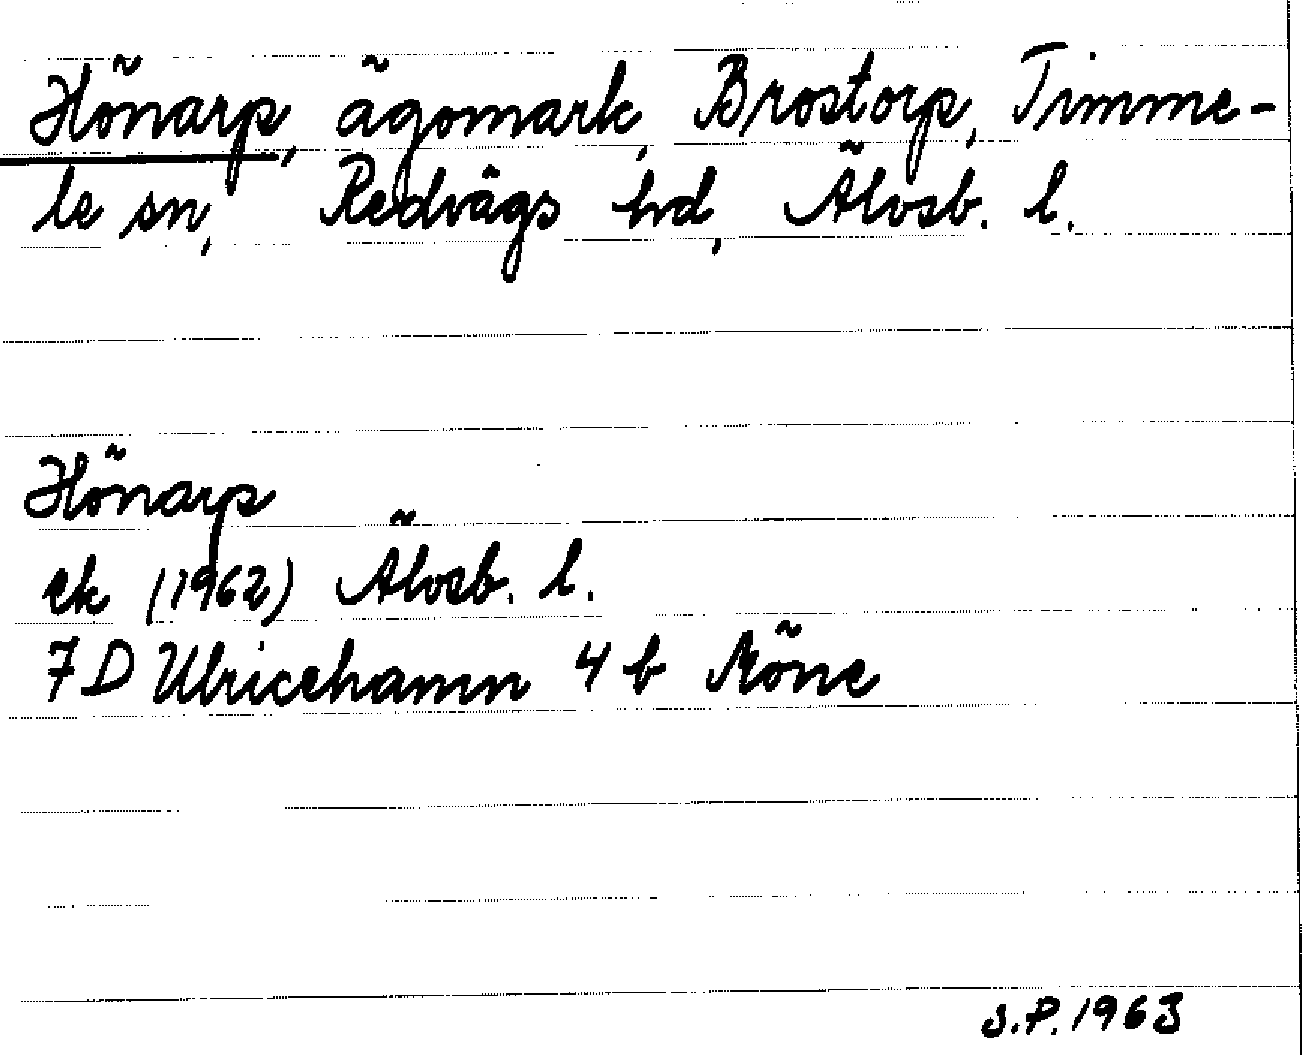 Hönarp, ägomark, Brostorp, Timme-
le sn, Redvägs hd, Älvsb. l.
Hönarp
ek (1962) Älvsb. l.
7D Ulricehamn 4 b Möne
S.P. 1963